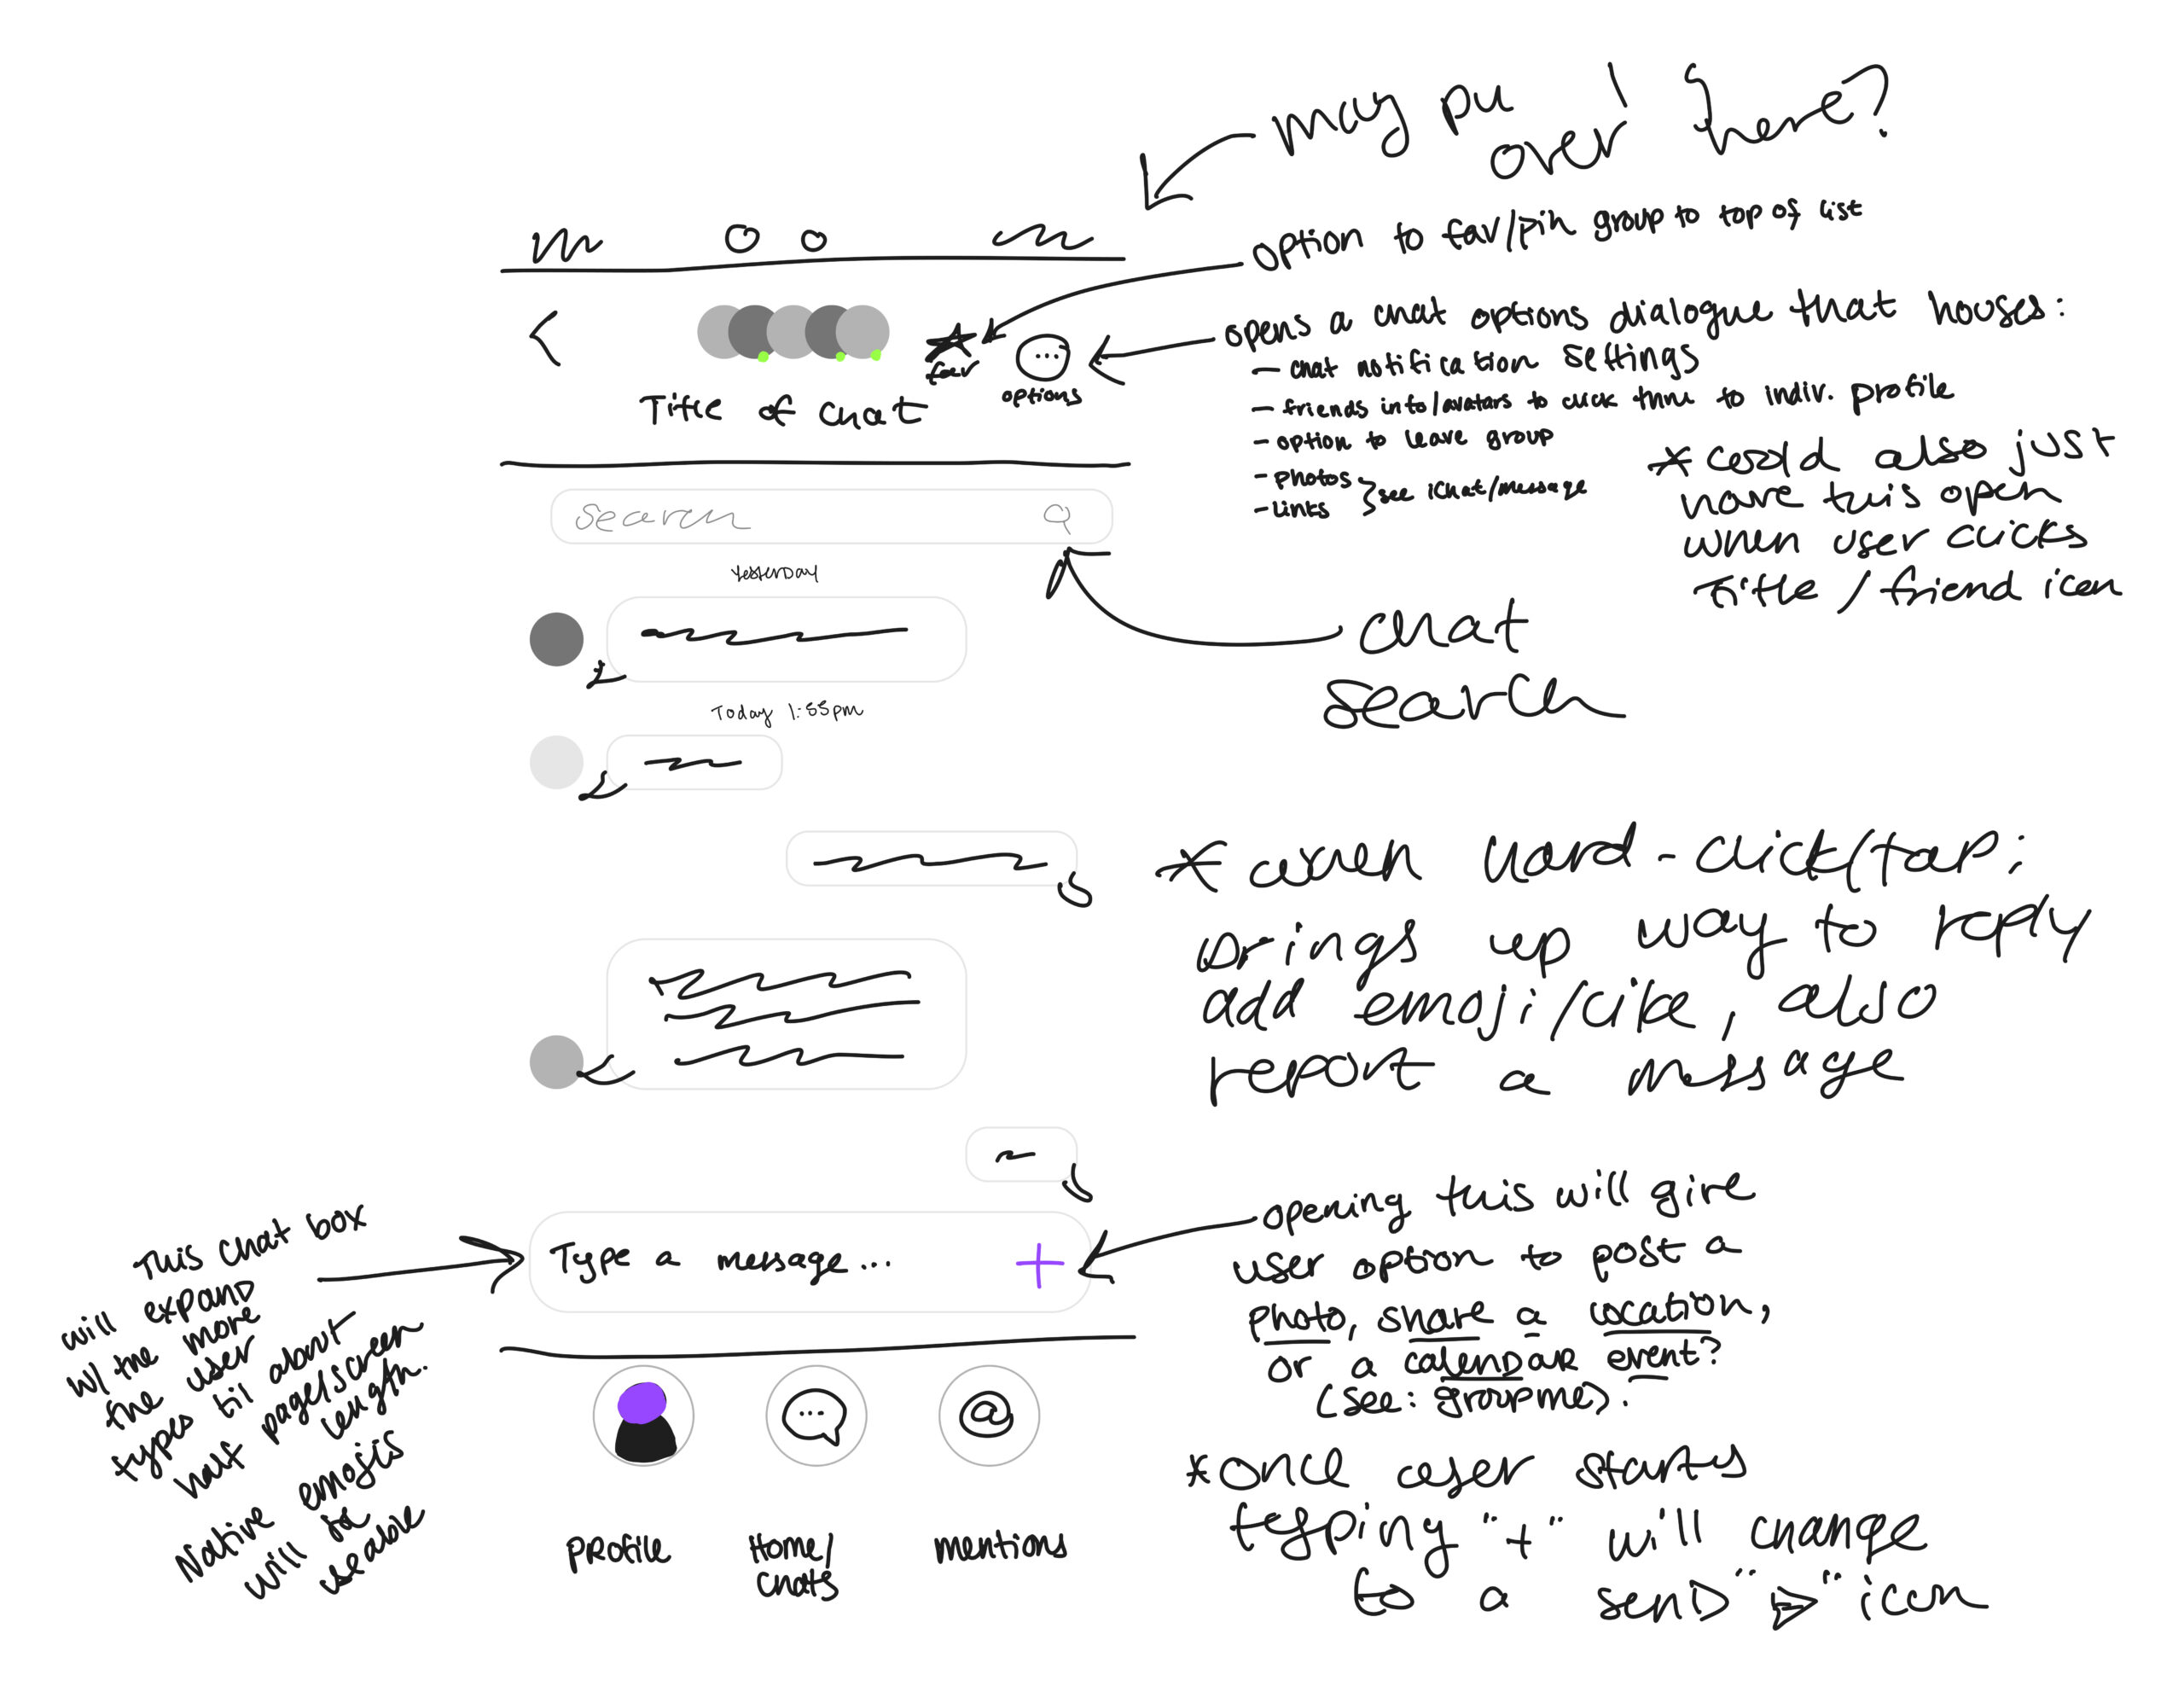 may pu
over! here?
option to fav/pin group to top of list
opens a chat options dialogue that houses:
- chat notification settings
- friends info/avatars to click thru to indiv. profile
- option to leave group
- photos
- links
} see iChat/message
* could also just
have this open
when user clicks
Title / friend icon
fav
...
options
Title of chat
search
Yesterday
chat
search
Today 1:55pm
* when hard-click/tap:
brings up way to reply
add emoji/like, also
report a message
Type a message... +
opening this will give
user option to post a
photo, share a location,
or a calendar event?
(see: groupme).
* once user starts
typing "+" will change
to a send " " icon
This chat box
will expand
w/ the more
the user
types til about
half page/screen
length.
Native emojis
will be
useable
...
@
profile
Home/
chats
mentions